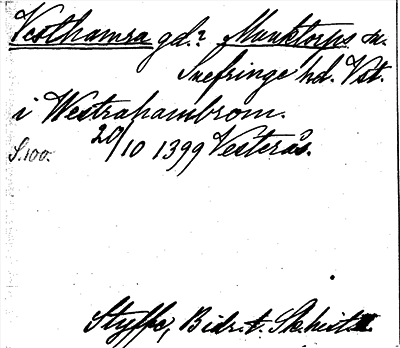 Vesthamra gd.? Munktorps sn.
Snefringe hd. Vst.
i Westrahambrom.
S. 100.
20/10 1399 Vesterås.
Styffe, Bidr. t. Sk. hist. I